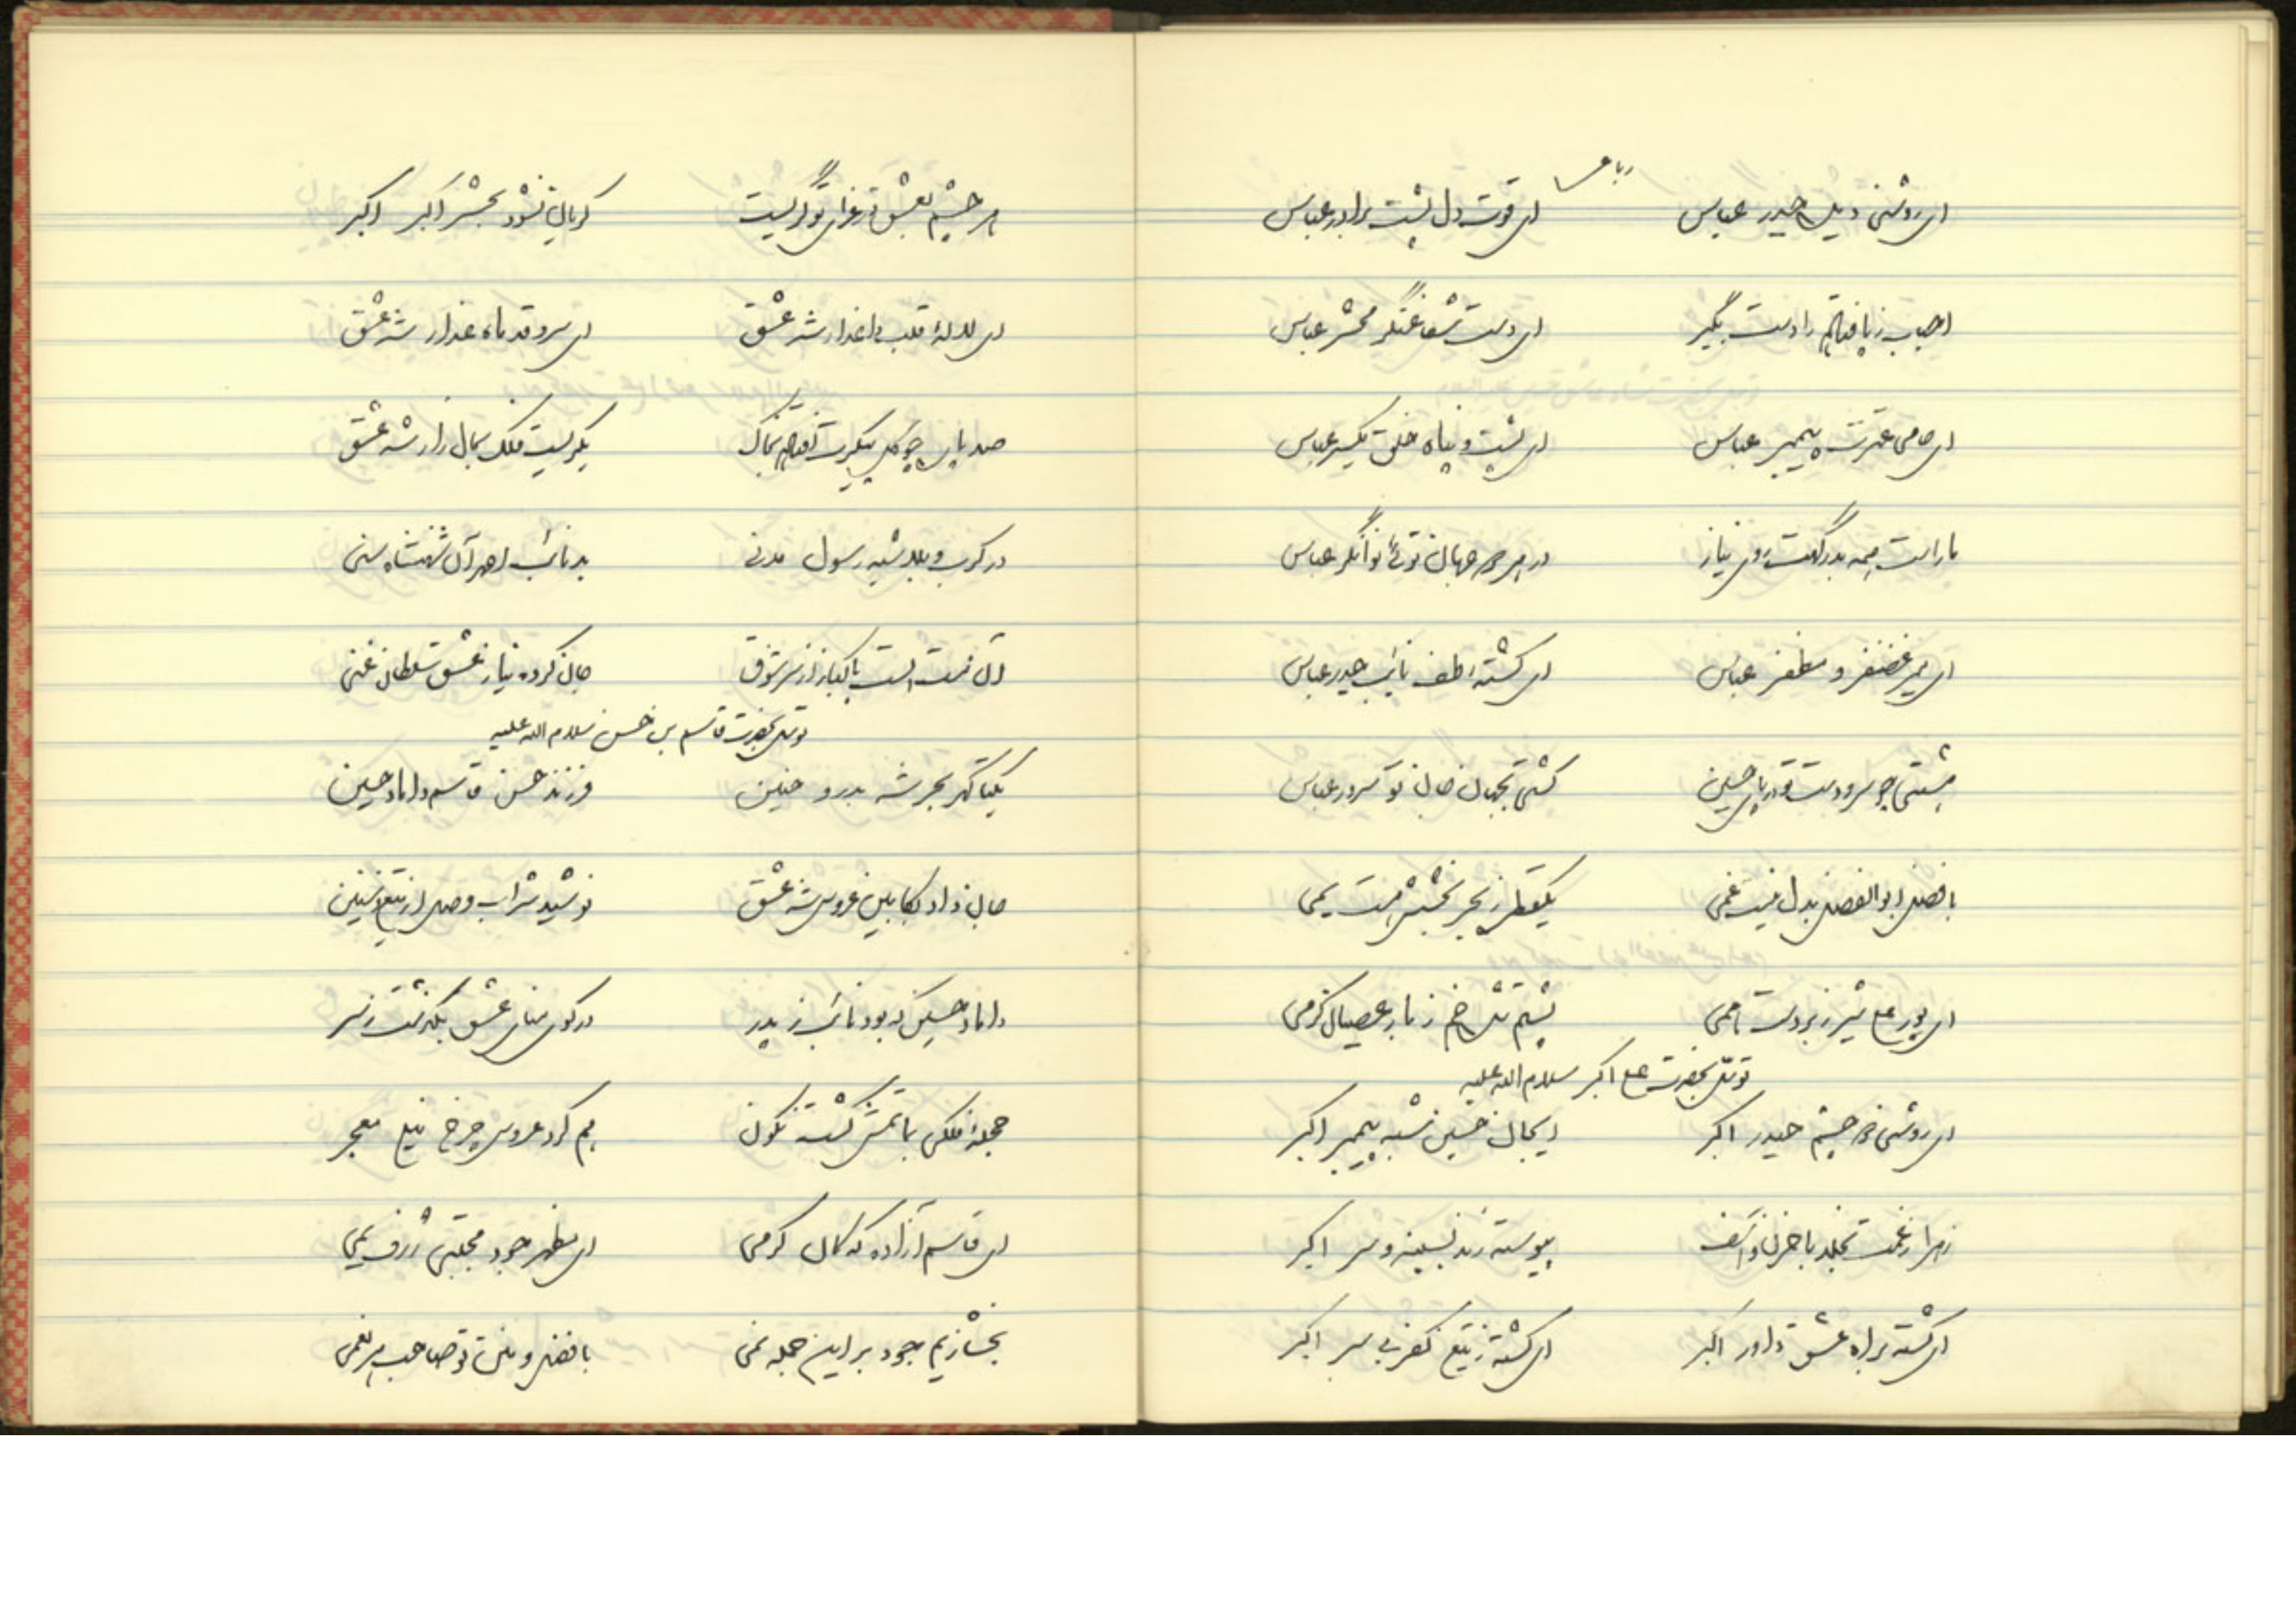 رباعی
ای روشنی دیده حیدر عباس ای قوت دل پشت برادر عباس
احباب ز پا فتاده را دست بگیر ای دست شفاعتگر محشر عباس
ای حامی عترت پیمبر عباس ای پشت و پناه خلق یکسر عباس
ما راست همه بدرگهت روی نیاز در هر دو جهان توئی توانگر عباس
ای میر غضنفر و مظفر عباس ای کشته لطف نایب حیدر عباس
چو سر و دست در پای حسین گشتی بجهان سرور عباس
با فضل ابوالفضل بدل نیست غمی یکقطره ز بحر بخششش هست یمی
ای پور علی شیر زبردست پشتم شده خم ز بار عصیان کرمی
توسل بحضرت علی اکبر سلام الله علیه
ای روشنی دو چشم حیدر اکبر ایجان حسین شبه پیمبر اکبر
زهرا ز غمت بخلد با حزن و اسف پیوسته زند بسینه و سر اکبر
ای کشته براه عشق داور اکبر ای کشته ز تیغ کفر بی سر اکبر
هر چشم بعشق در عزای تو گریست گریان نشود بحشر اکبر اکبر
ای لاله قلب داغدار شه عشق ای سرو قد ماه عذار شه عشق
صد پاره چو گل پیکرت افتاد بخاک بگریست فلک بحال زار شه عشق
در کرب و بلا شبیه رسول مدنی بد نایب آن شهنشاه
آن مست الست پاکباز از سر شوق جان کرده نیاز عشق سلطان غنی
توسل بحضرت قاسم بن حسن سلام الله علیه
یکتا گهر بحر شه بدر و حنین فرزند حسن قاسم داماد حسین
جان داد بکابین عروس شه عشق نوشید شراب وصل از تیغ
داماد حسین که بود نایب ز پدر در کوی منای عشق بگذشت ز سر
حجله فلکی بماتمش گشت نگون هم کرد عروس چرخ نیلی معجر
ای قاسم آزاده که کان کرمی ای مظهر جود مجتبی ژرف یمی
بخشا ز جود بر این جمله نمی با فضل و تو صاحب هر نعمی